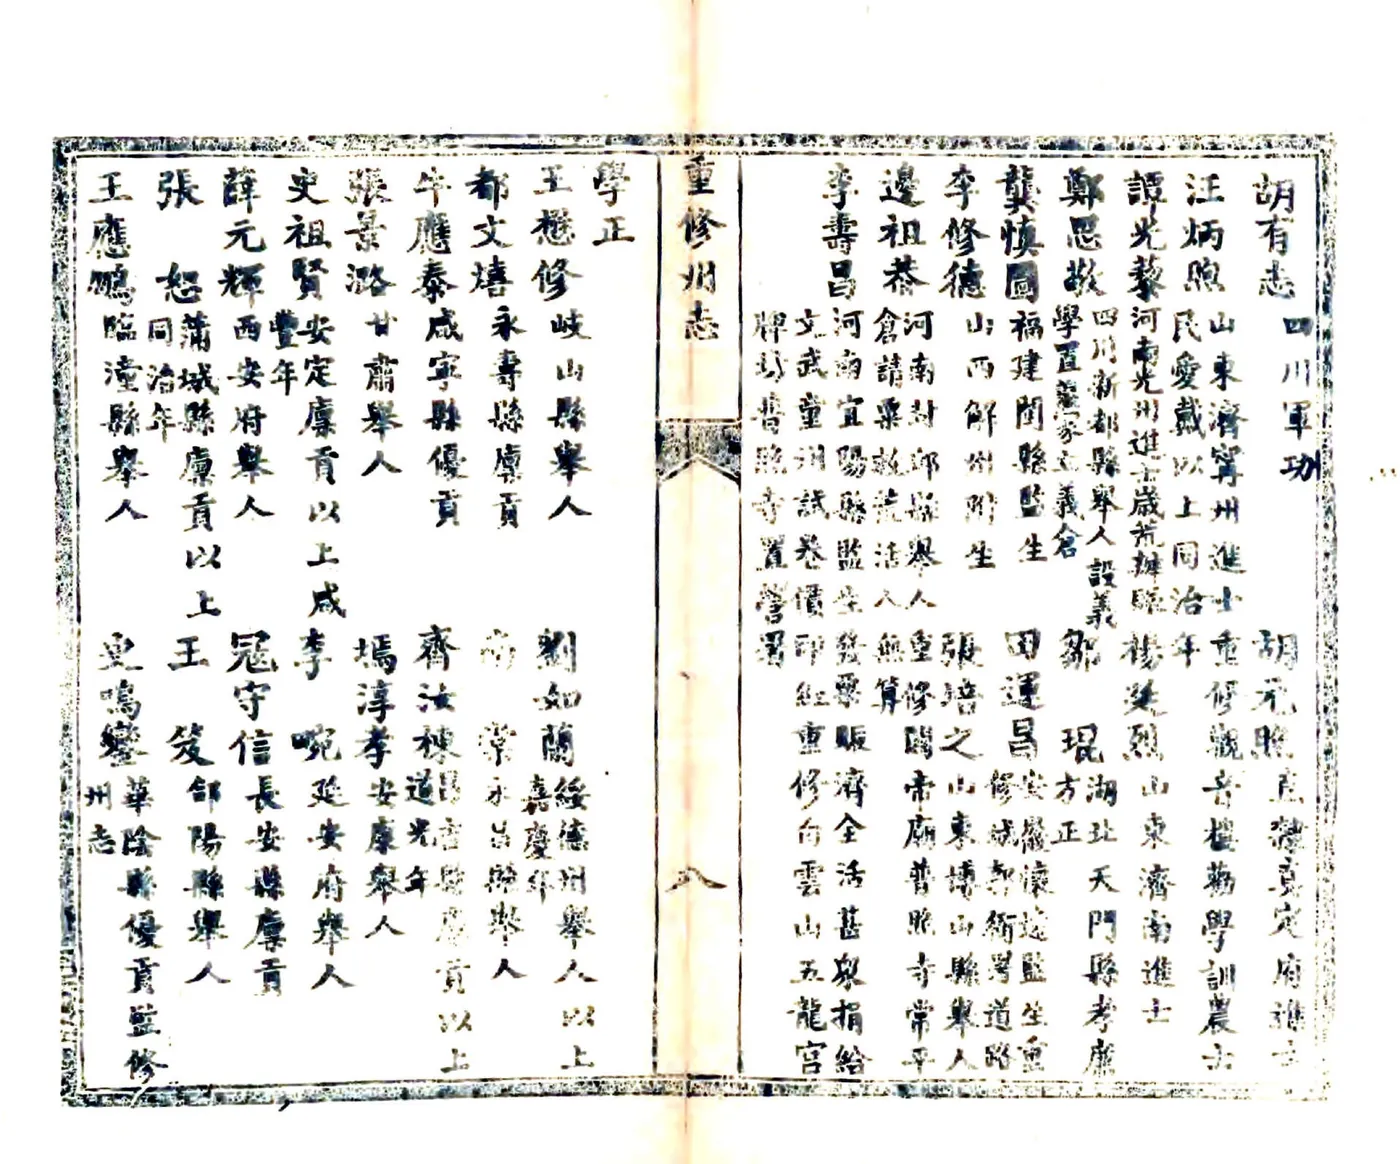 胡有志 四川軍功 胡元煦 直隸真定府進士
汪炳煦 山東濟寧州進士重修觀音樓勸學訓農士
民愛戴以上同治年
譚光藜 河南光州進士歲荒辦賑 楊延烈 山東濟南進士
鄭思敬 四川新都縣舉人設義 鄒 琨 湖北天門縣孝廉
學置 義倉 方正
龔慎圖 福建閩縣監生 田運昌 安徽懷遠監生重
修城郭衙署道路
李修德 山西解州附生 張培之 山東博山縣舉人
邊祖恭 河南封邱縣舉人重修關帝廟普照寺常平
倉請粟 活人無算
李壽昌 河南宜陽縣監生發粟賑濟全活甚眾捐給
文武童州試卷價印紅重修白雲山五龍宮
牌坊普照寺置營署
重修州志
八
學正
王懋修 岐山縣舉人 劉如蘭 綏德州舉人以上
嘉慶年
都文熺 永壽縣廩貢 尚 常 永昌縣舉人
牛應泰 咸寧縣優貢 齊汝棟 縣廩貢以上
道光年
張景潞 甘肅舉人 淳孝 安康舉人
史祖賢 安定廩貢以上咸 李 婉 延安府舉人
豐年
薛元輝 西安府舉人 冦守信 長安縣廩貢
張 恕 蒲城縣廩貢以上 王 笈 郃陽縣舉人
同治年
王應鵷 臨潼縣舉人 史鳴鑾 華陰縣優貢監修
州志